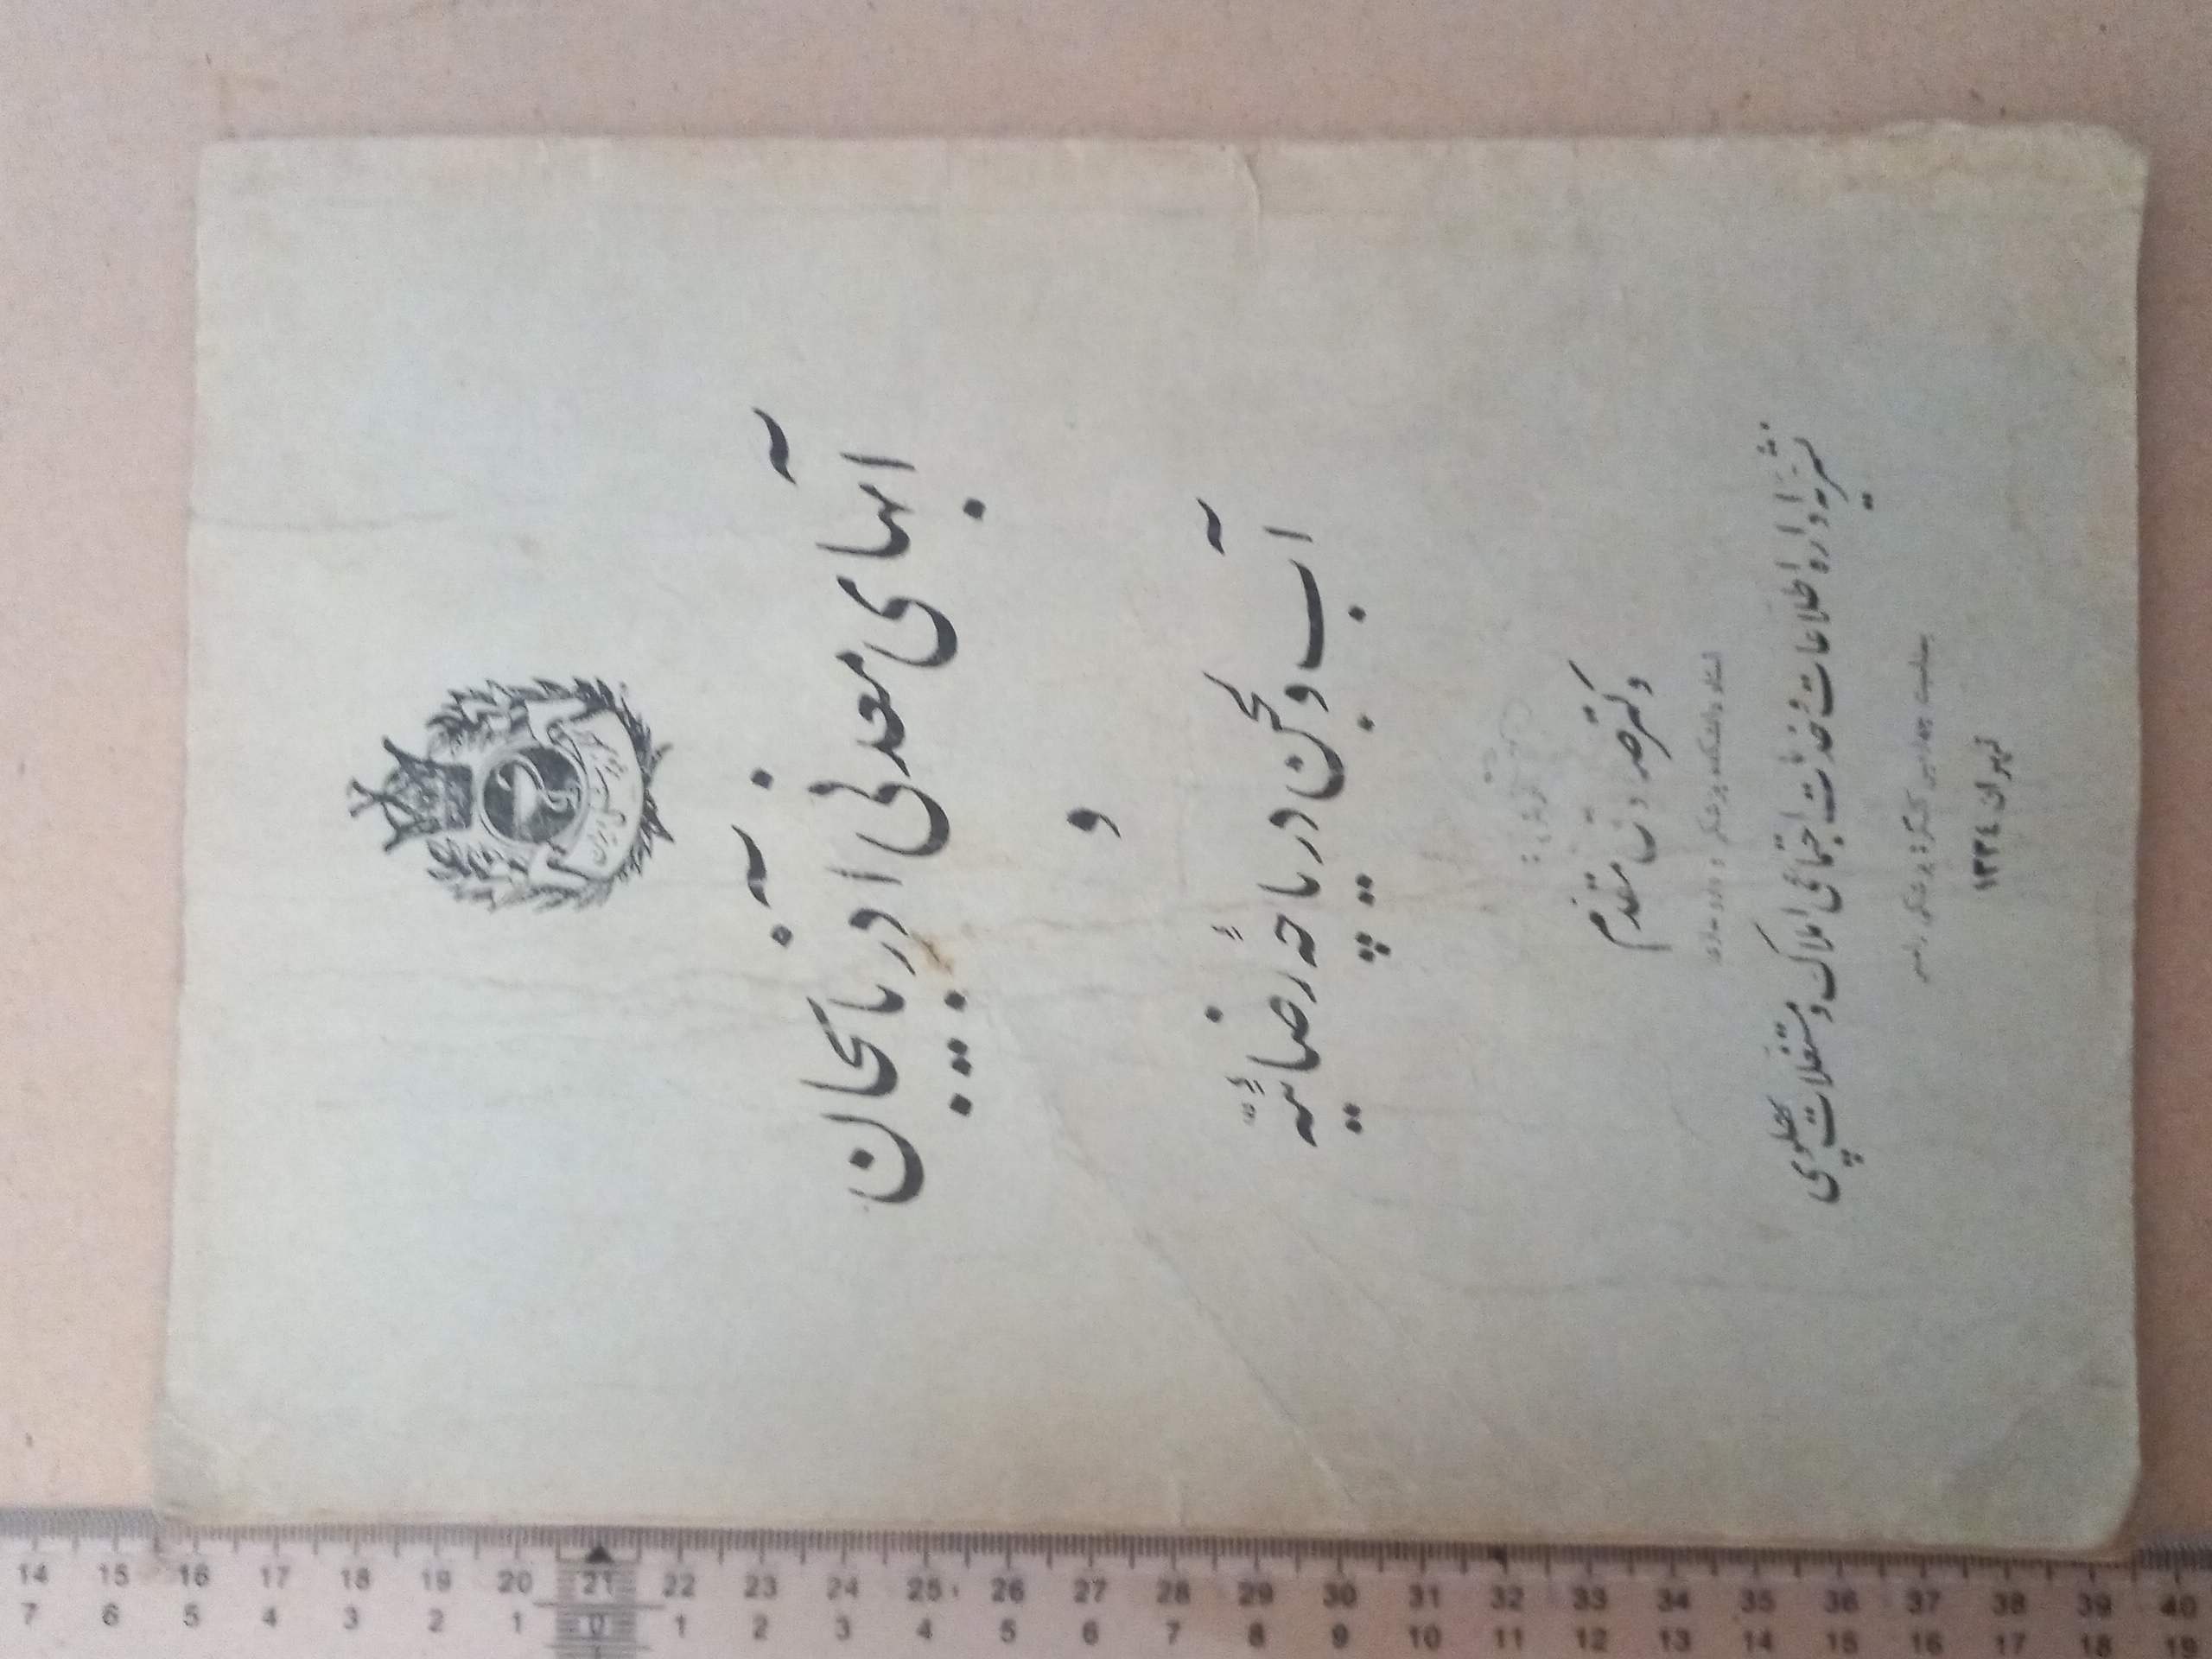 آبهای معدنی آذربایجان
و
آب و لجن دریاچه رضائیه
نگارش:
دکتر صادق مقدم
استاد دانشکده پزشکی و داروسازی
نشریه اداره اطلاعات و خدمات اجتماعی املاک و مستغلات پهلوی
بمناسبت چهارمین کنگره پزشکی رامسر
تهران ۱۳۳۴
14 15 16 17 18 19 20 21 22 23 24 25 26 27 28 29 30 31 32 33 34 35 36 37 38 39 40
7 6 5 4 3 2 1 0 1 2 3 4 5 6 7 8 9 10 11 12 13 14 15 16 17 18 19